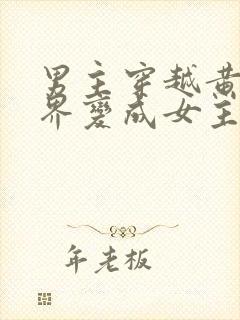 男主穿越黄
界变成女主
年老板